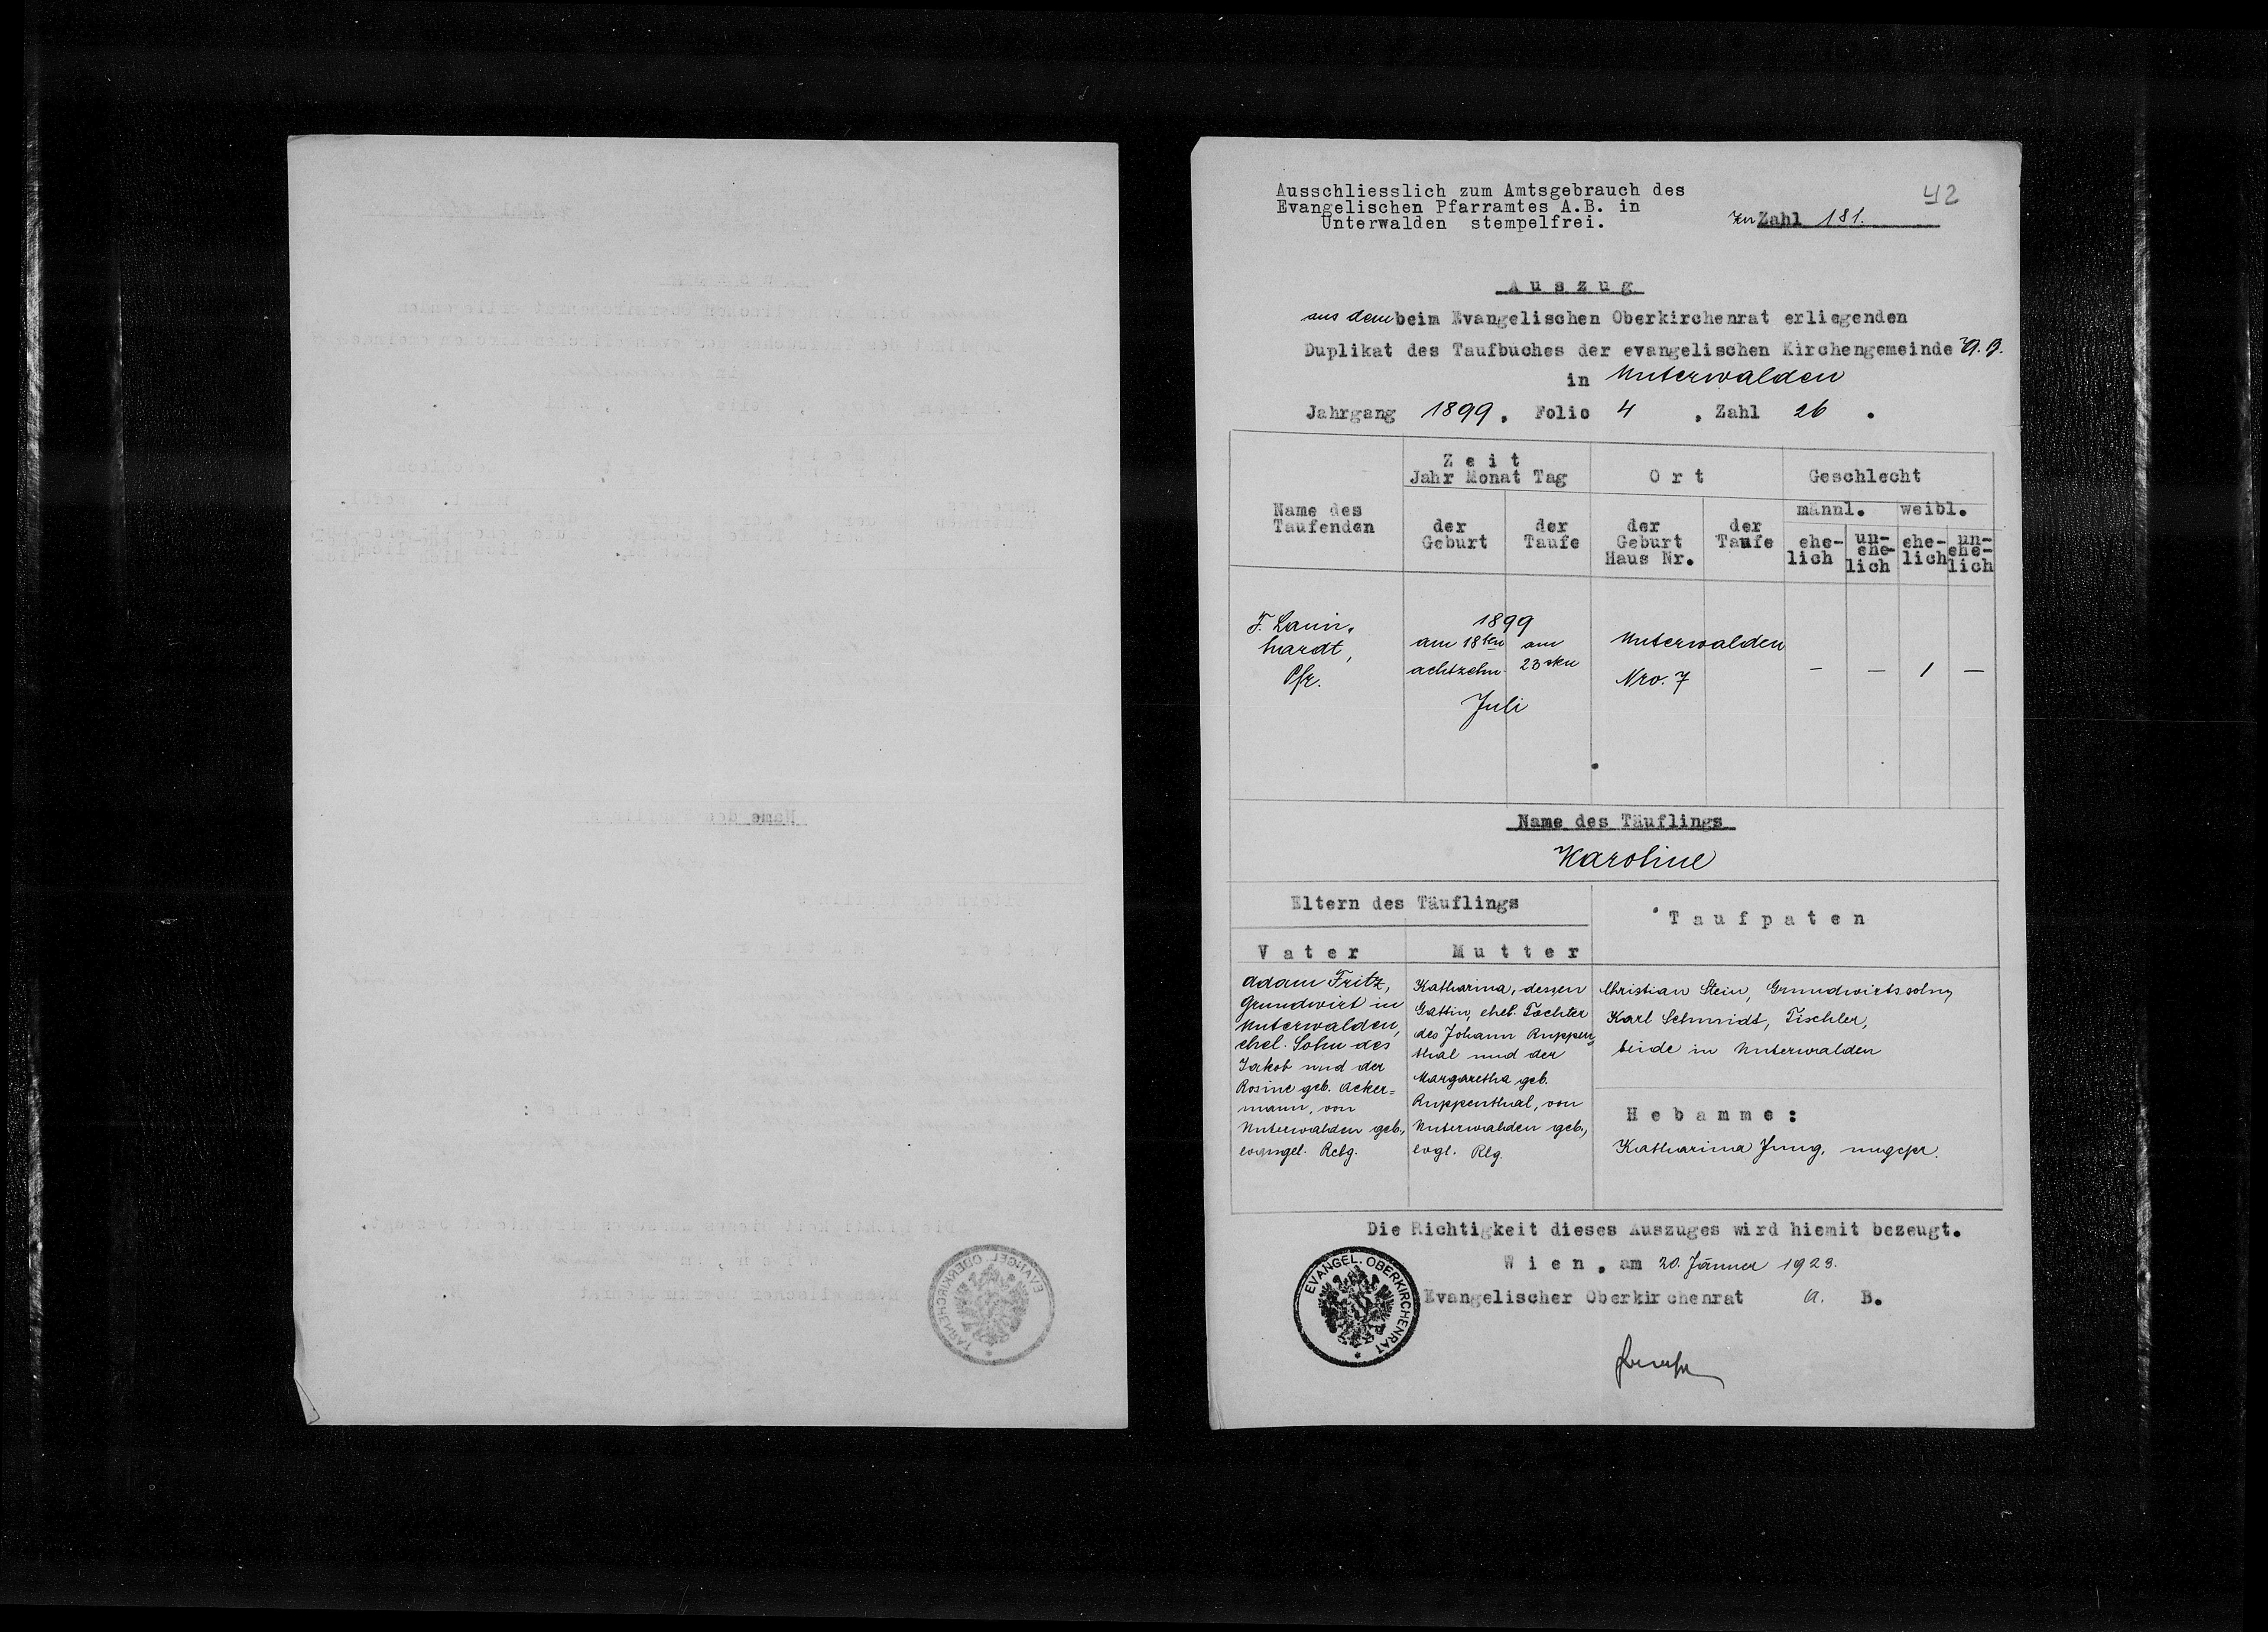 Ausschliesslich zum Amtsgebrauch des
Evangelischen Pfarramtes A.B. in
Unterwalden stempelfrei.
42
Zu Zahl 181.
Auszug
aus dem beim Evangelischen Oberkirchenrat erliegenden
Duplikat des Taufbuches der evangelischen Kirchengemeinde A.B.
in Unterwalden
Jahrgang 1899, Folio 4, Zahl 26.
Name des
Taufenden
Zeit
Jahr Monat Tag
der
Geburt
der
Taufe
Ort
der
Geburt
Haus Nr.
der
Taufe
Geschlecht
männl. weibl.
ehe-
lich
un-
ehe-
lich
ehe-
lich
un-
ehe-
lich
F. Laun-
hardt,
Pfr.
1899
am 18ten am
achtzehn 23sten
Juli
Unterwalden
Nro. 7
— — 1 —
Name des Täuflings
Karoline
Eltern des Täuflings
Vater
Adam Fritz,
Grundwirt in
Unterwalden,
ehel. Sohn des
Jakob und der
Rosine geb. Acker=
mann, von
Unterwalden geb.,
evangel. Relg.
Mutter
Katharina, dessen
Gattin, ehel. Tochter
des Johann Ruppen-
thal und der
Margaretha geb.
Ruppenthal, von
Unterwalden geb.,
evgl. Rlg.
Taufpaten
Christian Stein, Grundwirtssohn,
Karl Schmidt, Tischler,
beide in Unterwalden
Hebamme:
Katharina Jung, ungepr.
Die Richtigkeit dieses Auszuges wird hiemit bezeugt.
Wien, am 20. Jänner 1923.
Evangelischer Oberkirchenrat A. B.
EVANGEL. OBERKIRCHENRAT